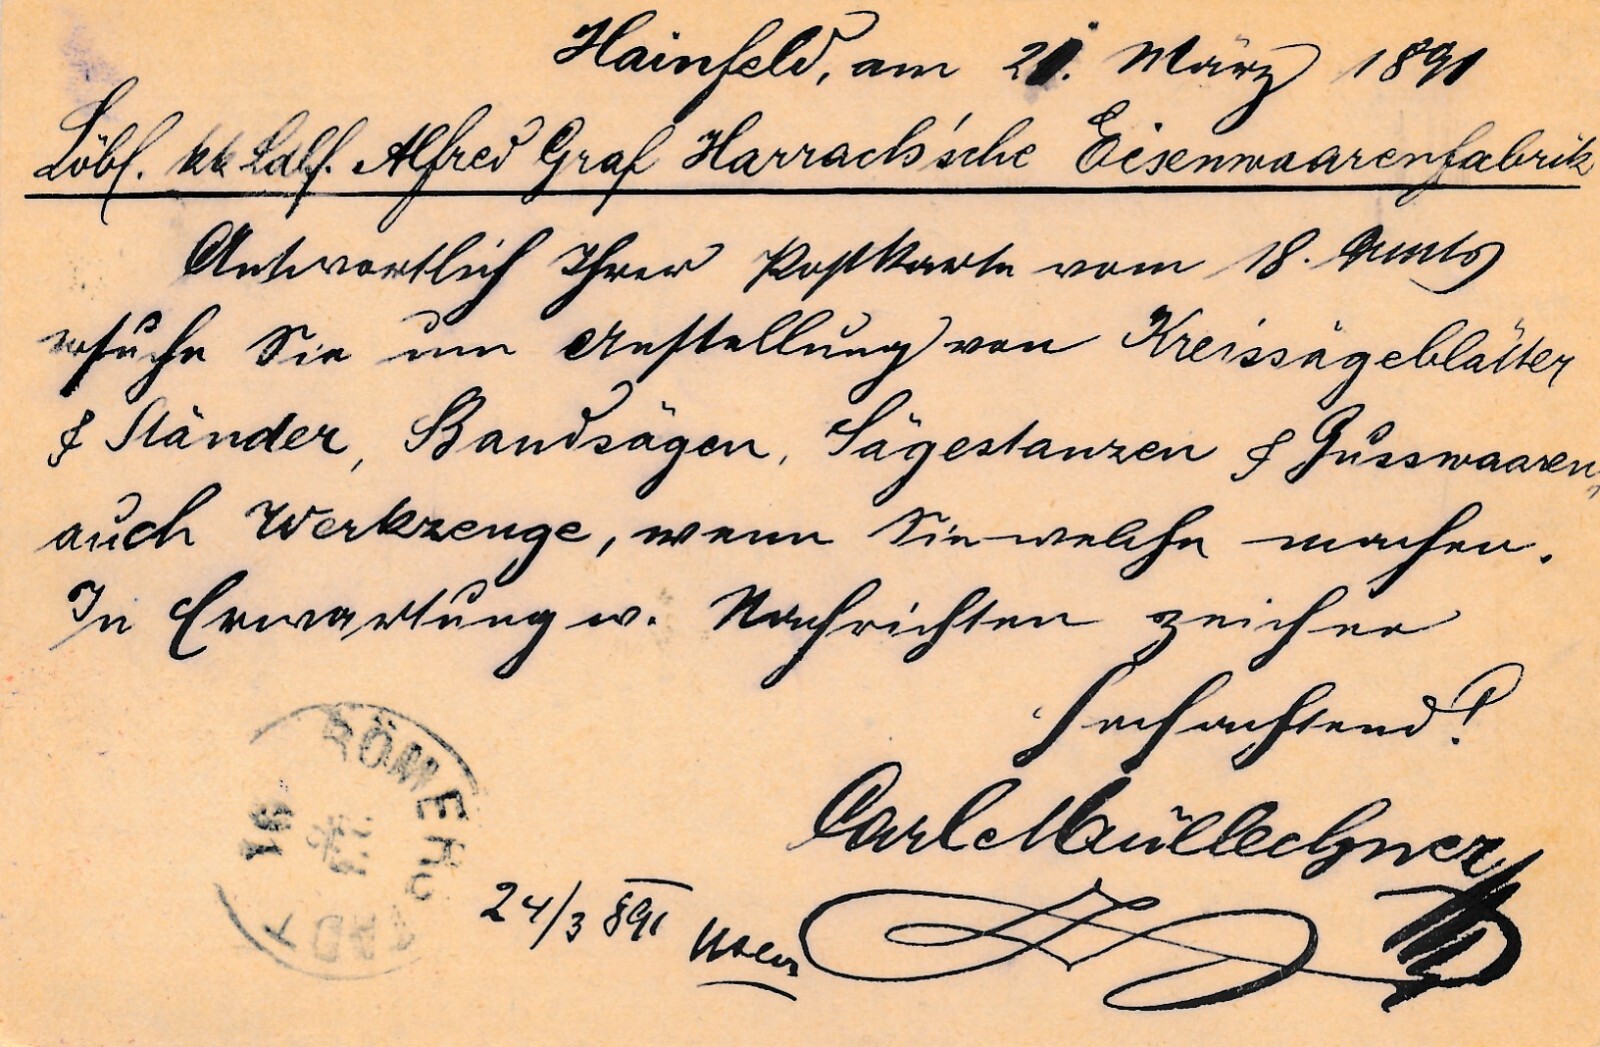 Hainfeld, am 21. März 1891
Löbl. kk Ldbf. Alfred Graf Harrach'sche Eisenwaarenfabrik
Antwortlich Ihrer Postkarte vom 18.
ersuche Sie um Anstellung von Kreissägeblätter
& Ständer, Bandsägen, Sägestanzen & Gusswaaren,
auch Werkzeuge, wenn Sie welche machen.
In Erwartung w. Nachrichten zeichne
Hochachtend!
Carl Müllechner
RÖMERSTADT
91
24/3 891